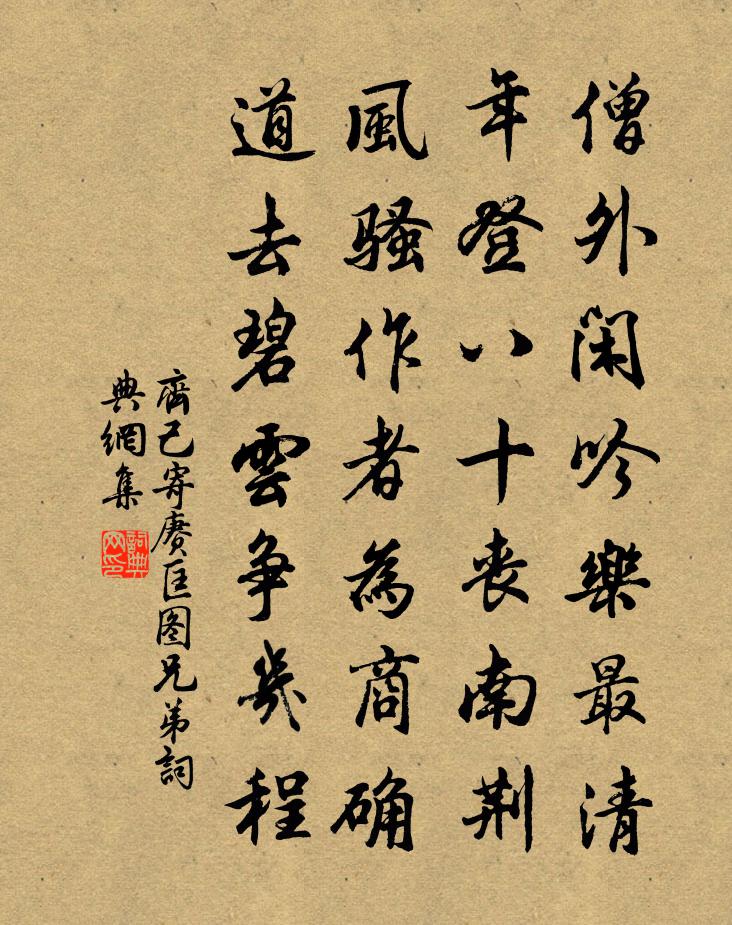 僧外閑吟樂最清
年登八十喪南荆
風騷作者為商确
道去碧雲争幾程
齊己寄賡匡图兄弟詞
典網集
詞典
网印